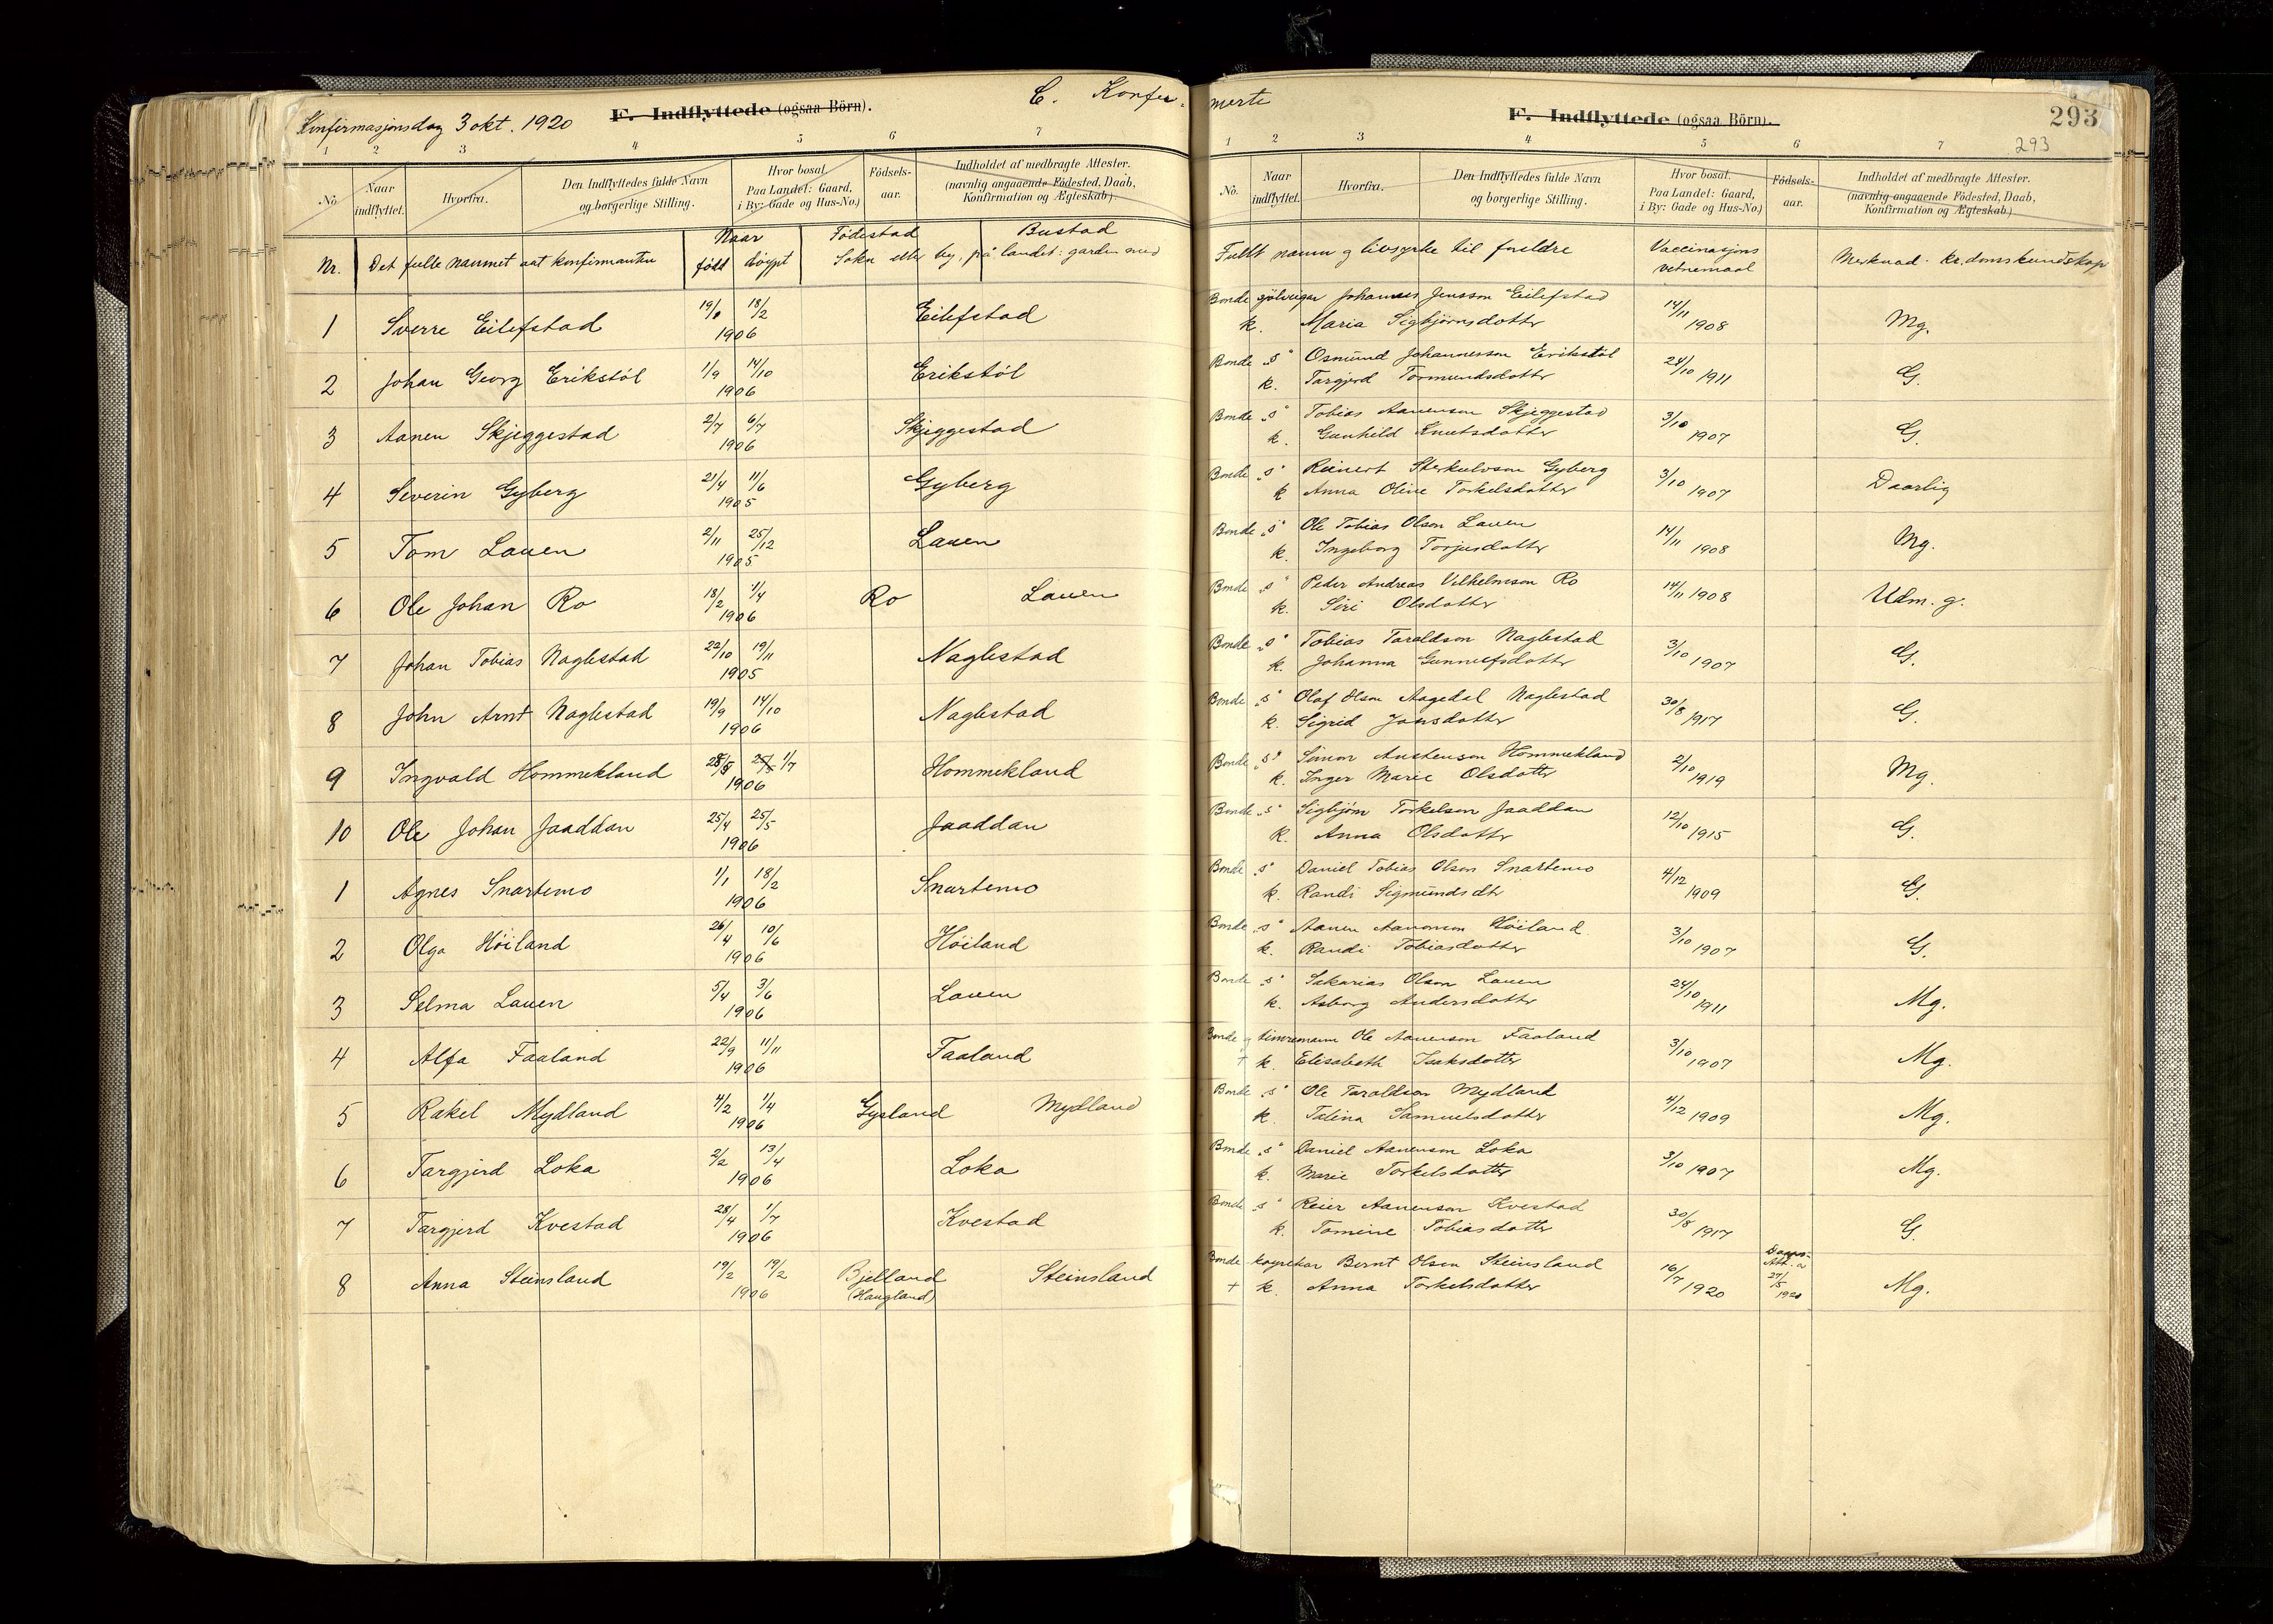 Konfirmasjonsdag 3 okt. 1920
F. Indflyttede (ogsaa Börn).
C. Konfir-
1 2 3 4 5 6 7
No.
Naar indflyttet.
Hvorfra.
Den Indflyttedes fulde Navn og borgerlige Stilling.
Hvor bosat. Paa Landet: Gaard, i By: Gade og Hus-No.)
Födsels-aar.
Indholdet af medbragte Attester. (navnlig angaaende Födested, Daab, Konfirmation og Ægteskab).
Nr. Det fulle namnet aat konfirmanten
Naar
född döypt
Födestad
Bustad
Sokn eller by, på landet: garden med
1 Sverre Eilefstad 19/1 18/2 1906 Eilefstad
2 Johan Georg Erikstöl 1/9 14/10 1906 Erikstöl
3 Aanen Skjeggestad 2/7 6/7 1906 Skjeggestad
4 Severin Gyberg 21/4 11/6 1905 Gyberg
5 Tom Lauen 2/11 25/12 1905 Lauen
6 Ole Johan Ro 18/2 1/4 1906 Ro Lauen
7 Johan Tobias Naglestad 22/10 19/11 1905 Naglestad
8 John Arnt Naglestad 19/9 14/10 1906 Naglestad
9 Ingvald Hommekland 28/5 25/5 1/7 1906 Hommekland
10 Ole Johan Jaaddan 25/4 25/5 1906 Jaaddan
1 Agnes Snartemo 1/1 18/2 1906 Snartemo
2 Olga Höiland 26/4 10/6 1906 Höiland
3 Selma Lauen 5/4 3/6 1906 Lauen
4 Alfa Faaland 22/9 11/11 1906 Faaland
5 Rakel Mydland 4/2 1/4 1906 Gysland Mydland
6 Targjerd Loka 2/2 13/4 1906 Loka
7 Targjerd Kvestad 28/4 1/7 1906 Kvestad
8 Anna Steinsland 19/2 19/2 1906 Bjelland (Haugland) Steinsland
merte
F. Indflyttede (ogsaa Börn).
293
293
1 2 3 4 5 6 7
No.
Naar indflyttet.
Hvorfra.
Den Indflyttedes fulde Navn og borgerlige Stilling.
Hvor bosat. Paa Landet: Gaard, i By: Gade og Hus-No.)
Födsels-aar.
Indholdet af medbragte Attester. (navnlig angaaende Födested, Daab, Konfirmation og Ægteskab)
Fullt namn og livsyrke til foreldre
Vaccinasjons vitnemaal
Merknad. Kr.domskundskap
Bonde sjölveigar Johannes Jensson Eilefstad
k. Maria Sigbjörnsdotter 14/11 1908 Mg.
Bonde „s" Osmund Johannesson Erikstöl
k. Targjerd Tormundsdotter 24/10 1911 G.
Bonde „s" Tobias Aanenson Skjeggestad
k. Gunhild Knutsdotter 3/10 1907 G.
Bonde „s" Reinert Sterkulvson Gyberg
k Anna Oline Torkelsdotter 3/10 1907 Daarlig
Bonde „s" Ole Tobias Olson Lauen
k. Ingeborg Torjusdotter 14/11 1908 Mg.
Bonde „s" Peder Andreas Vilhelmson Ro
k. Siri Olsdotter 14/11 1908 Udm. g.
Bonde „s" Tobias Taraldson Naglestad
k. Johanna Gunnulfsdotter 3/10 1907 G.
Bonde „s" Olaf Olson Aagedal Naglestad
k. Sigrid Jonsdotter 30/8 1917 G.
Bonde „s" Simon Austenson Hommekland
k. Inger Marie Olsdotter 2/10 1919 Mg.
Bonde „s" Sigbjörn Torkelson Jaaddan
k. Anna Olsdotter 12/10 1915 G.
Bonde „s" Daniel Tobias Olson Snartemo
k. Randi Sigmundsdtr 4/12 1909 G.
Bonde „s" Aanen Aanonson Höiland
k. Randi Tobiasdotter 3/10 1907 G.
Bonde „s" Sakarias Olson Lauen
k. Asborg Andersdotter 24/10 1911 Mg.
Bonde og timremann Ole Aanenson Faaland
+ k. Elisabeth Isaksdotter 3/10 1907 Mg.
Bonde „s" Ole Taraldson Mydland
k. Talina Samuelsdotter 4/12 1909 Mg.
Bonde „s" Daniel Aanenson Loka
k. Marie Torkelsdotter 3/10 1907 Mg.
Bonde „s" Reier Aanenson Kvestad
k. Tomine Tobiasdotter 30/8 1917 G.
Bonde Bernt Olson Steinsland
+ k. Anna Torkelsdotter 16/7 1920 27/5 1920 Mg.